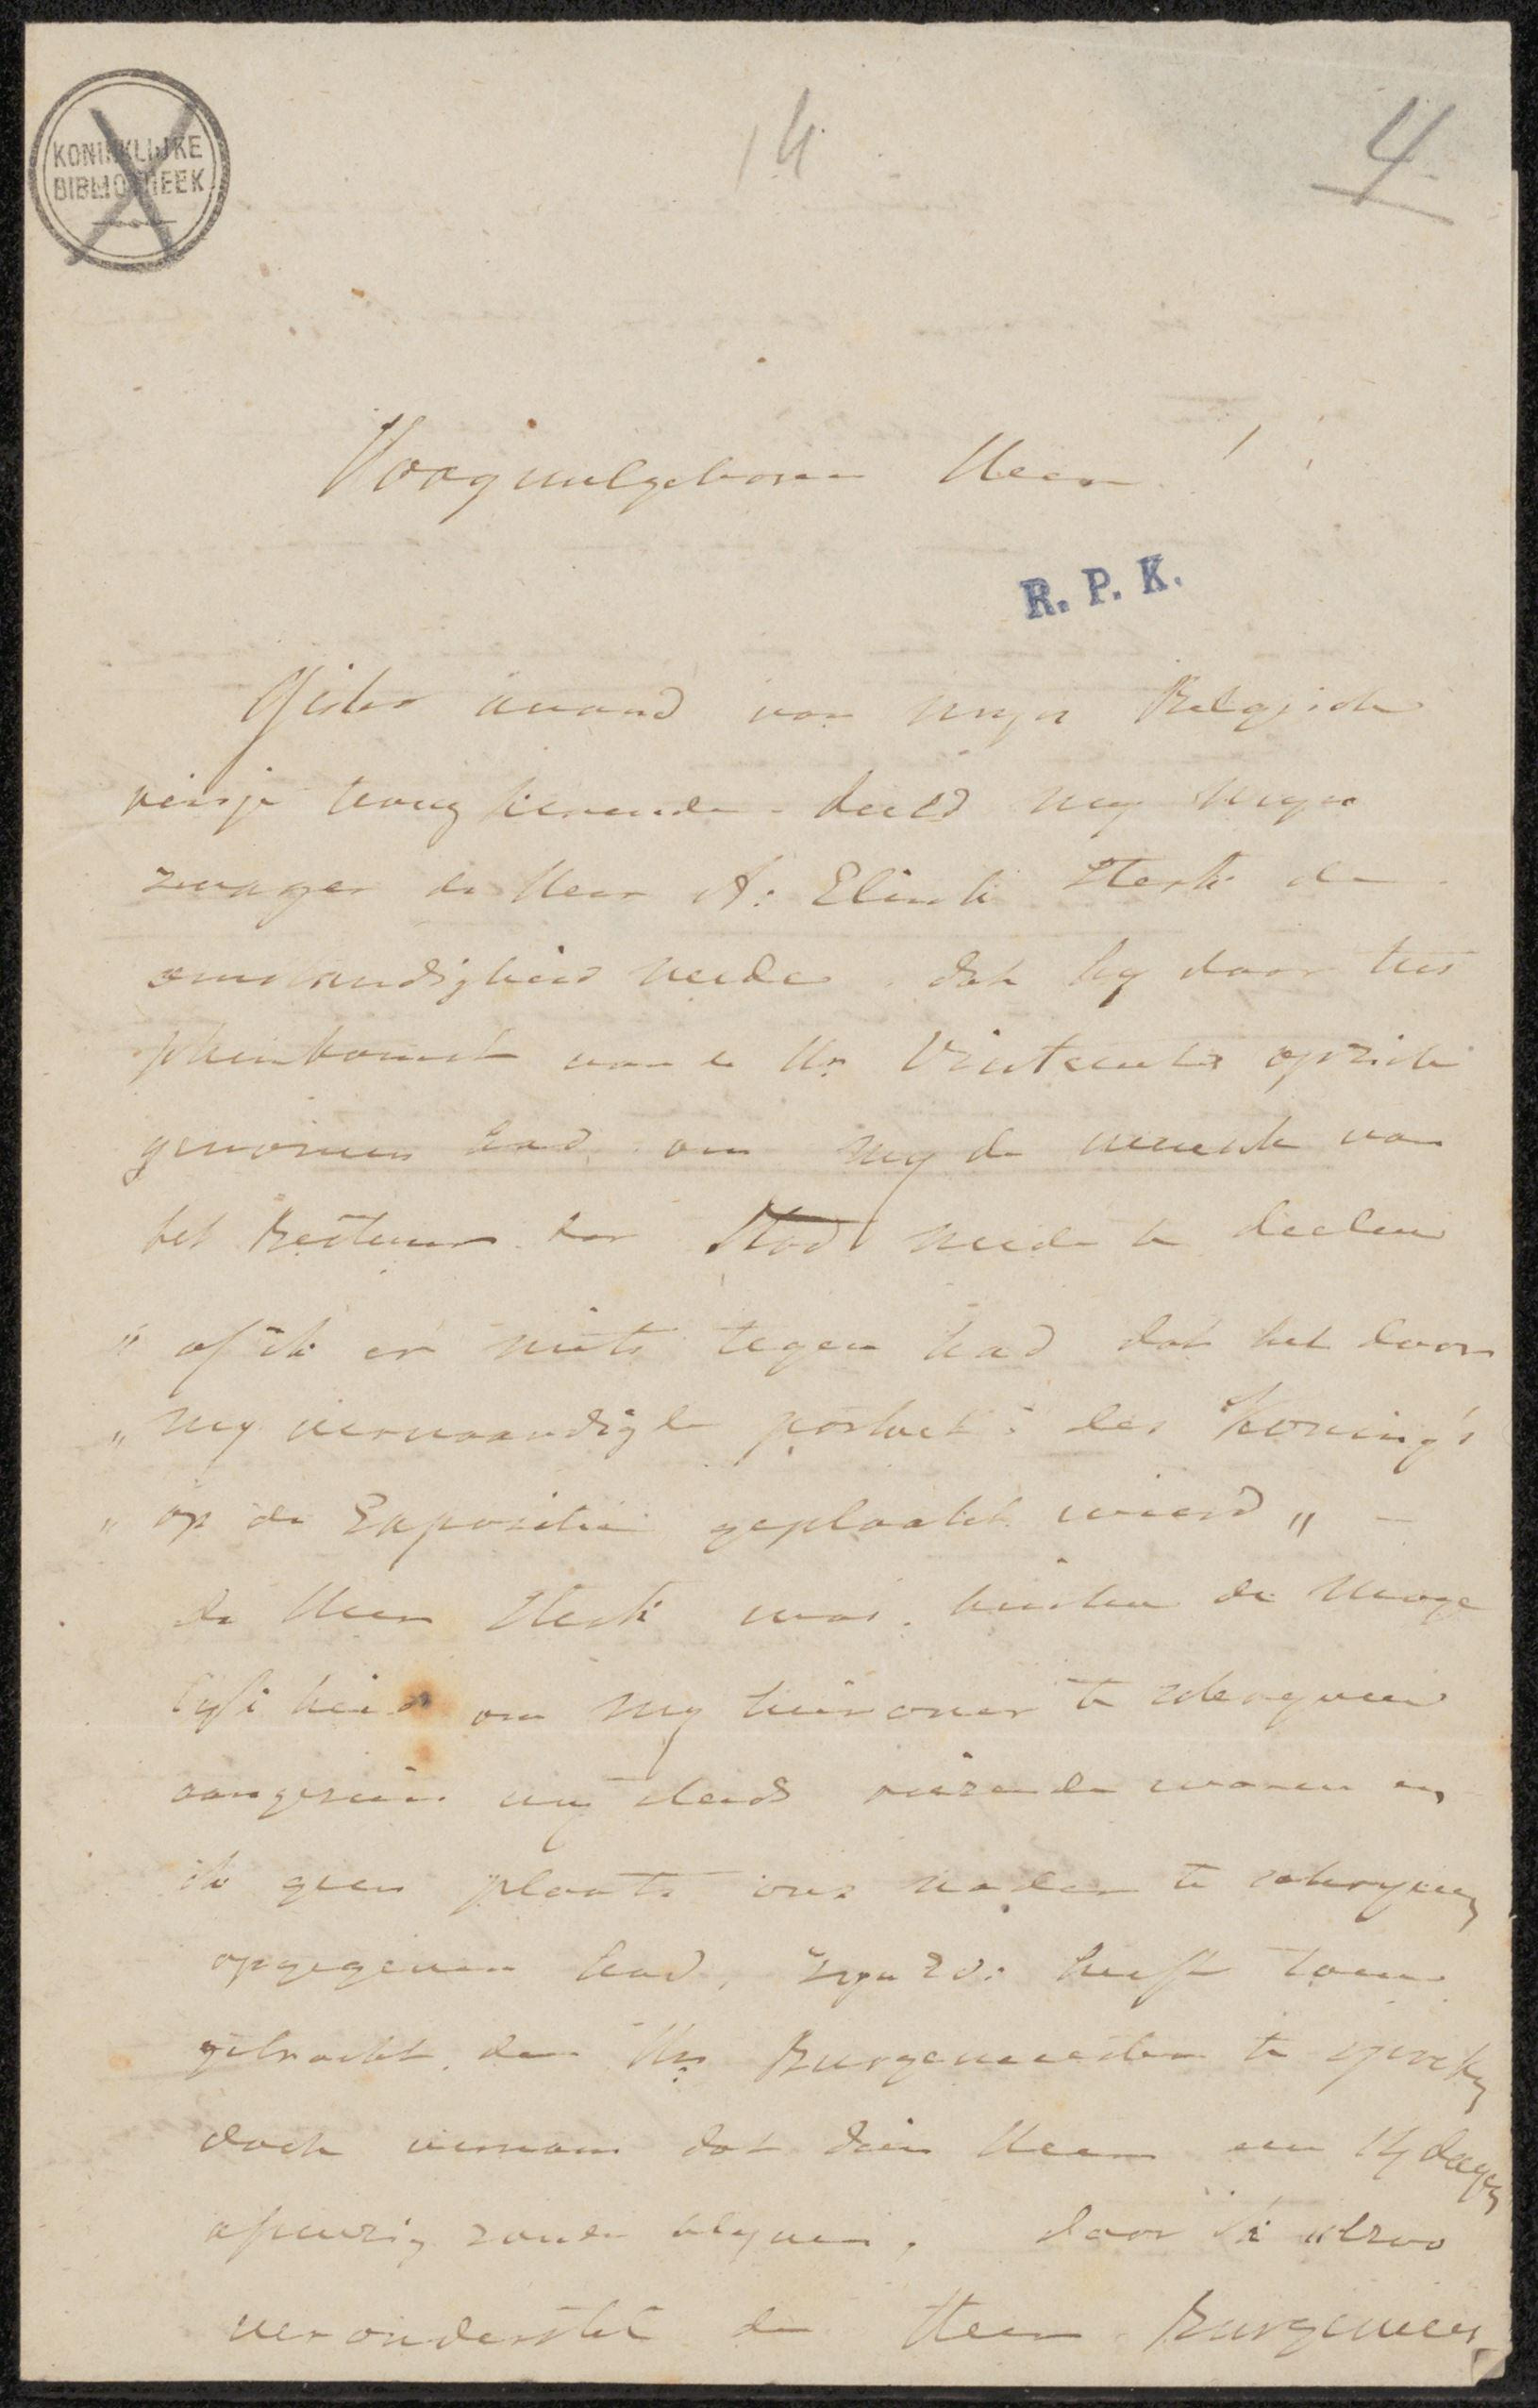 KONINKLIJKE
BIBLIOTHEEK
14
4
Hoogwelgeboren Heer!
R. P. K.
Gister avond van myn Belgisch
reisje terug keerende deeld my myn
zwager de Heer A: Elink Sterk de
omstandigheid mede dat hy door tus
schenkomst van de Hr Vintcent op zich
genomen had om my de wensch van
het Bestuur der Stad mede te deelen
" of ik er niets tegen had dat het door
" my vervaardigde portret des Koning's
" op de Expositie geplaatst wierd " -
de Heer Sterk was buiten de moge
lykheid om my hierover te schryven
aangezien wy steeds reizende waren en
ik geen plaats ons nader te schryven
opgegeven had, zyn Ed: heeft toen
getracht den Hr Burgemeester te spreken
doch vernam dat dien Heer een 14 dagen
afwezig zoude blyven, daar ik alzoo
veronderstel de Heer Burgemees